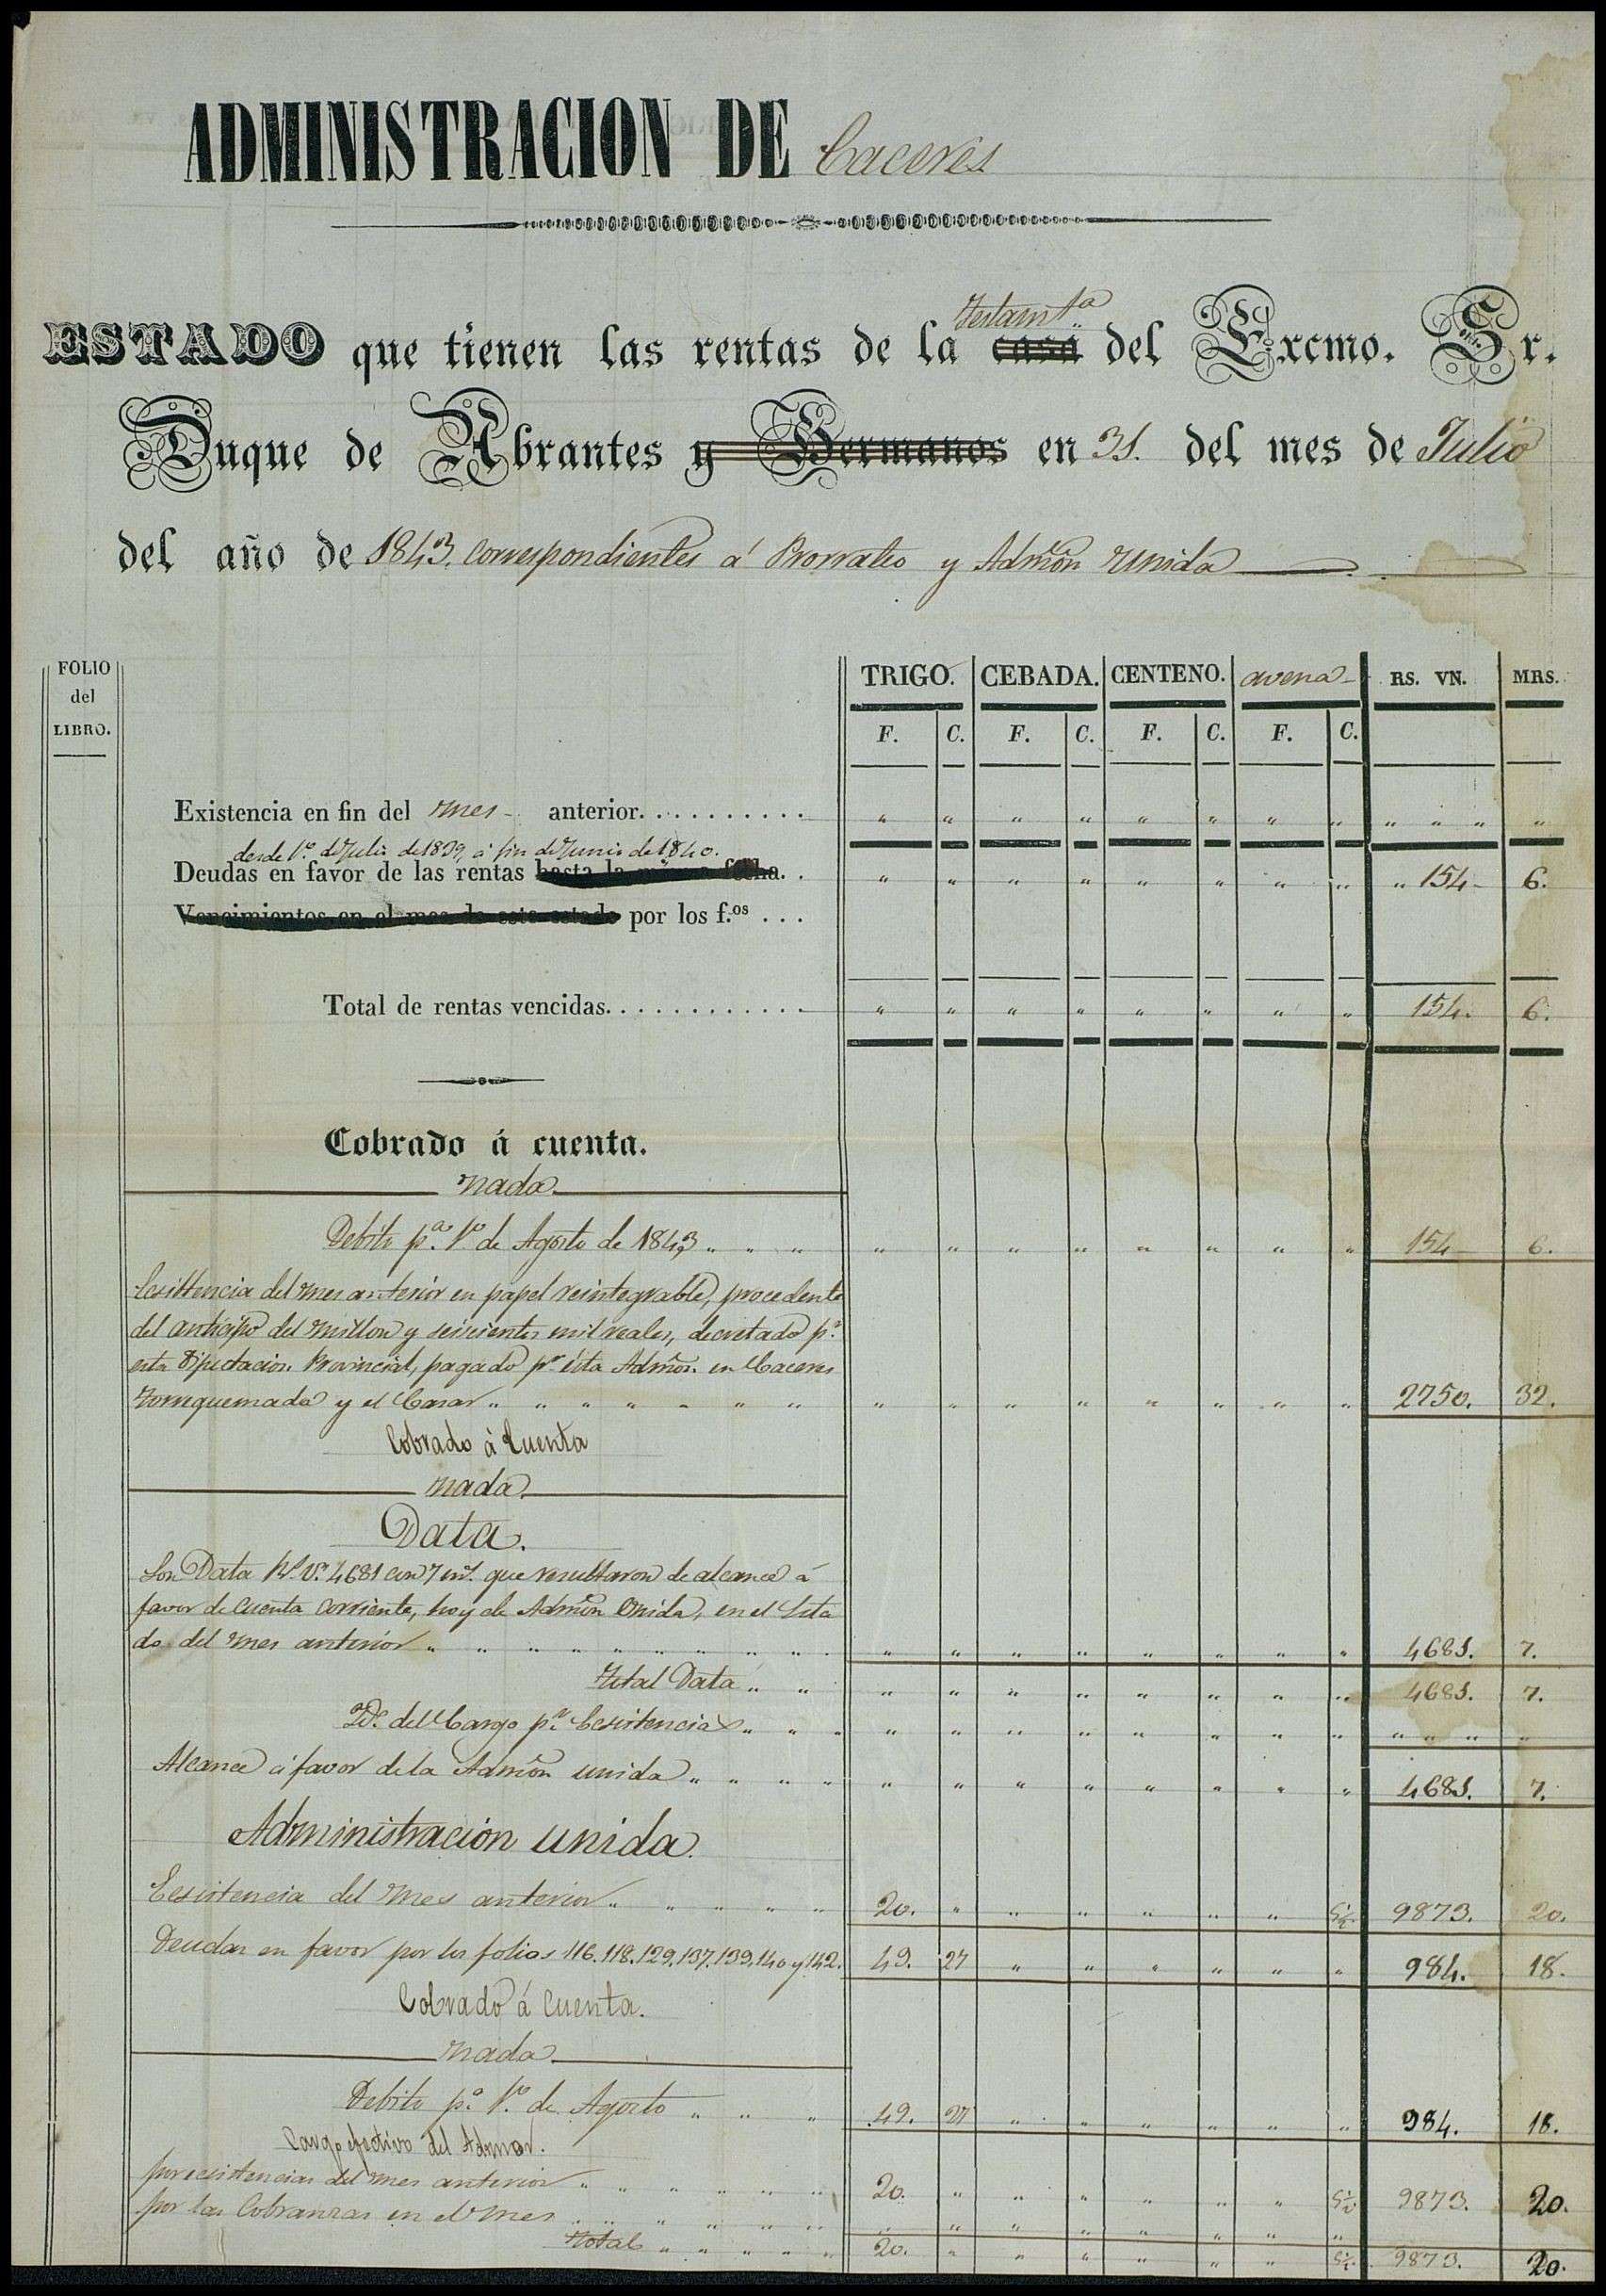 ADMINISTRACION DE Caceres
Testamt.a
ESTADO que tienen las rentas de la casa del Excmo. Sr.
Duque de Abrantes y Hermanos en 31. del mes de Julio
del año de 1843. correspondientes á Prorrateo y Admôn Unida
FOLIO del LIBRO. TRIGO. CEBADA. CENTENO. avena RS. VN. MRS.
F. C. F. C. F. C. F. C.
Existencia en fin del mes anterior. . . . . . . . . . " " " " " " " " " " " "
desde 1.º de Julio de 1839, á fin de Junio de 1840.
Deudas en favor de las rentas hasta la misma fecha. . " " " " " " " " " 154 6.
Vencimientos en el mes de este estado por los f.os . . .
Total de rentas vencidas. . . . . . . . . . . . " " " " " " " " 154. 6.
Cobrado á cuenta.
nada
Debito p.a 1.º de Agosto de 1843 " " " " " " " " " " " 154 6.
Ecsistencia del mes anterior en papel reintegrable, procedente
del anticipo del millon y seiscientos mil reales, decretado p.r
esta Diputacion Provincial, pagado p.r esta Admôn. en Caceres
Torrequemada y el Casar " " " " " " " " " " " " " " " 2750. 32.
Cobrado á Cuenta
nada
Data.
Son Data R.s V.n 4681 con 7 mrs. que resultaron de alcance á
favor de Cuenta Corriente, hoy de Admôn Unida, en el Esta
do del mes anterior " " " " " " " " " " " " " " " " " " 4681. 7.
Total Data " " " " " " " " " " 4681. 7.
Yd. del Cargo p.r Ecsistencias " " " " " " " " " " " " " " "
Alcance á favor de la Admôn unida " " " " " " " " " " " " 4681. 7.
Administracion unida.
Ecsistencia del Mes anterior " " " " " 20. " " " " " " 5½ 9873. 20.
Deudas en favor por los folios 116. 118. 129. 137. 139. 140 y 142. 49. 27 " " " " " " 984. 18.
Cobrado á Cuenta.
nada
Debito p.a 1.º de Agosto " " " 49. 27 " " " " " " 984. 18.
Cargo efectivo del Admor.
por ecsistencias del mes anterior " " " " " " 20. " " " " " " 5½ 9873. 20.
por las Cobranzas en el Mes " " " " " " " " " " " " " "
Total " " " " " 20. " " " " " " 5½ 9873. 20.